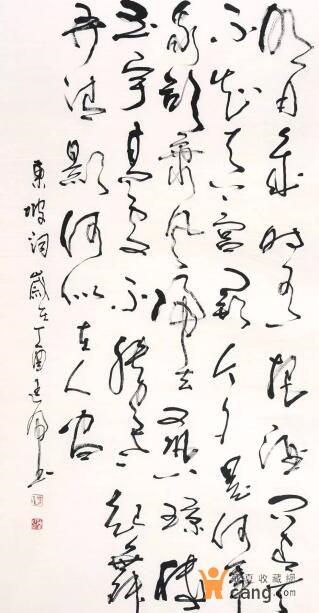 明月幾時有把酒问青天
不知天上宫阙今夕是何年
我欲乘风归去又恐琼楼
玉宇高处不勝寒起舞
弄清影何似在人间
東坡词歲在丁酉书
收藏网
cang.com